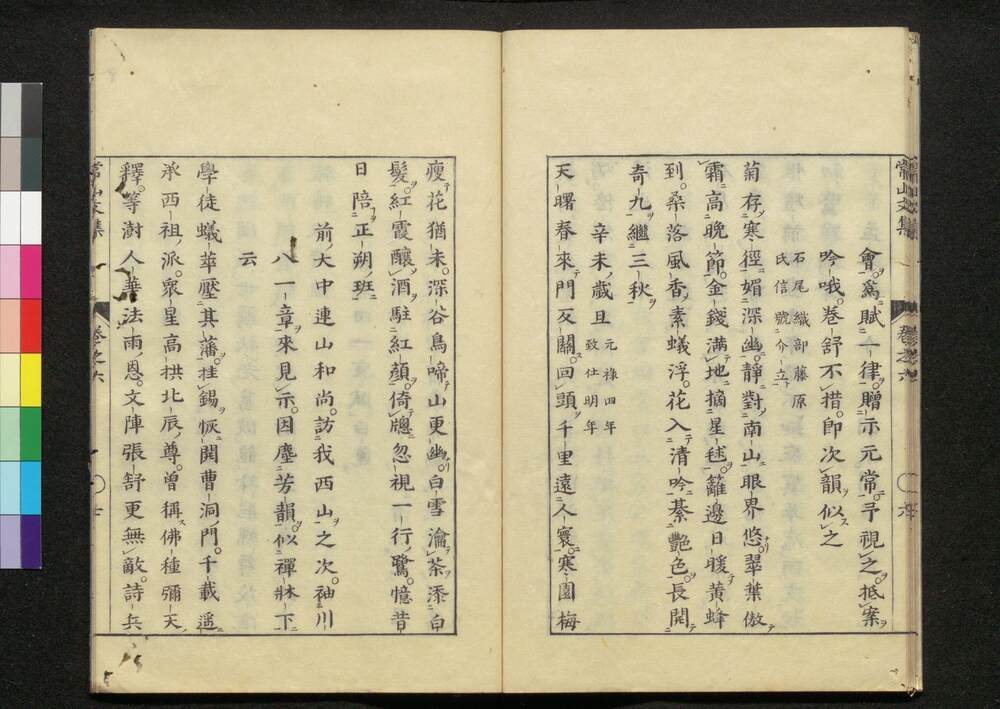 常山文集
卷之六
六
會。爲賦一律。贈示元常。予視之。抵案
吟哦。卷舒不措。卽次韻似之
石尾織部藤原
氏信號介立
菊存寒徑媚深幽。靜對南山眼界悠。翠葉傲
霜高晚節。金錢滿地摘星毬。籬邊日暖黃蜂
到。桑落風香素蟻浮。花入淸吟綦艷色。長開
奇九繼三秋
辛未歲旦
元祿四年
致仕明年
天曙春來門反關。回頭千里遠人寰。寒園梅
瘦花猶未。深谷鳥啼山更幽。白雪瀹茶添白
髮。紅霞釀酒駐紅顏。倚牕忽視一行鷺。憶昔
日陪正朔班
前大中連山和尚。訪我西山之次。袖川
八一章來見示。因塵芳韻。似禪牀下
云
學徒蟻萃壓其藩。挂錫恢開曹洞門。千載遥
承西祖派。衆星高拱北辰尊。曾稱佛種彌天
釋。等澍人華法雨恩。文陣張舒更無敵。詩兵
常山文集
卷之六
七